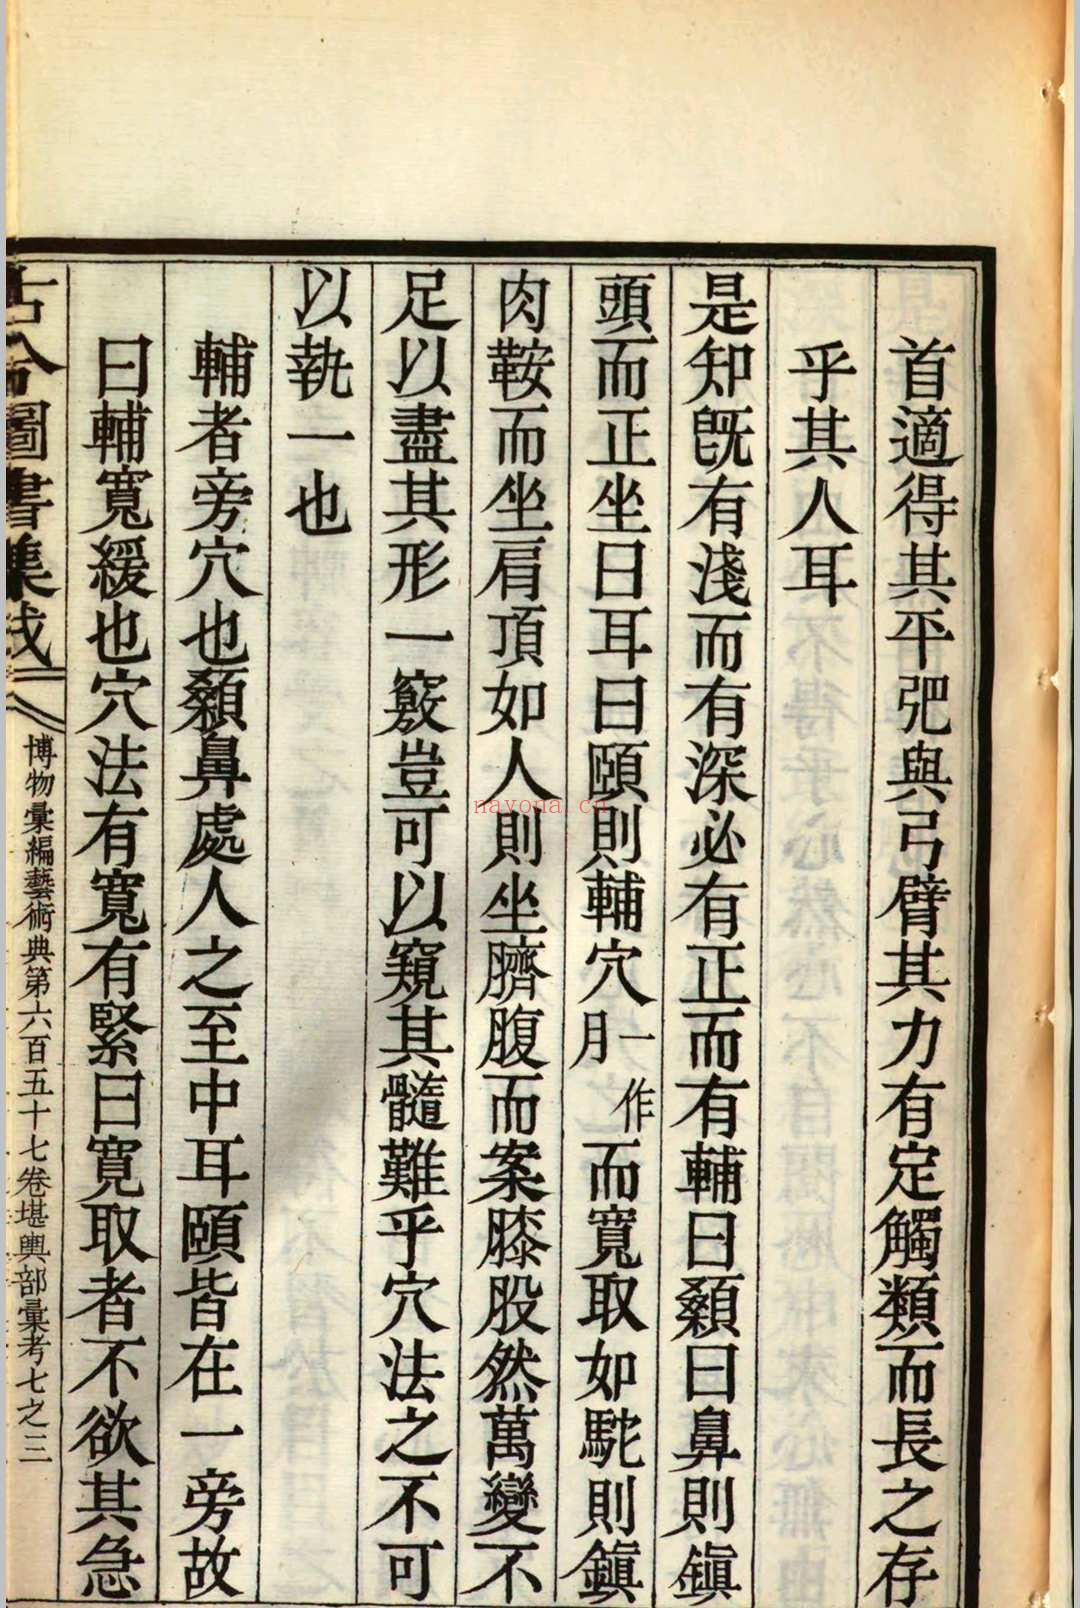 首適得其平弝與弓臂其力有定觸類而長之存
乎其人耳
是知旣有淺而有深必有正而有輔曰顙曰鼻則鎭
頭而正坐曰耳曰頤則輔穴一作月而寬取如駝則鎭
肉鞍而坐肩項如人則坐臍腹而案膝股然萬變不
足以盡其形一竅豈可以窺其髓難乎穴法之不可
以執一也
輔者旁穴也顙鼻處人之至中耳頤皆在一旁故
曰輔寬緩也穴法有寬有緊曰寬取者不欲其急
古今圖書集成
博物彙編藝術典第六百五十七卷堪輿部彙考七之三
nayona.cn